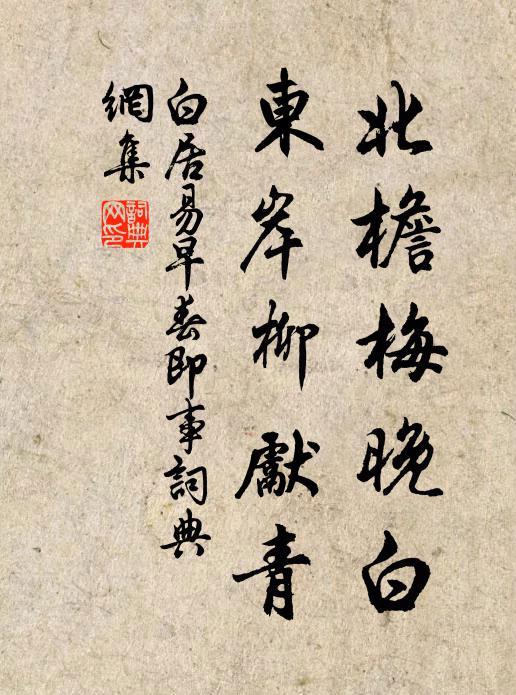 北檐梅晚白
東岸柳獻青
白居易早春即事詞典
網集
詞典
网印